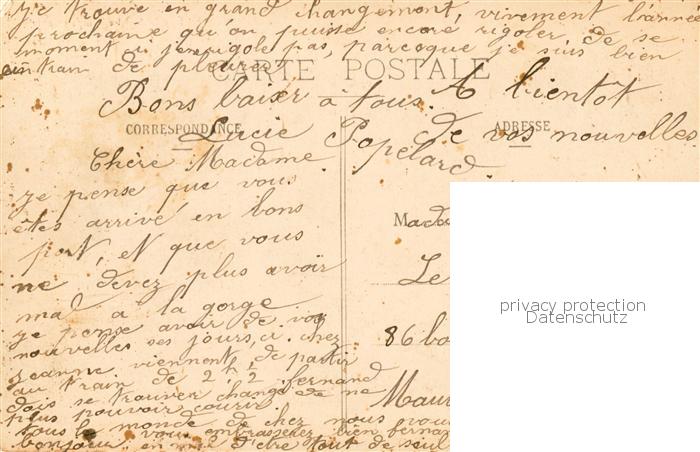 je trouve en grand changement, vivement l'année
prochaine qu'on puisse encore rigoler de se
moment si je rigole pas, parceque je suis bien
en train de pleurer
CARTE POSTALE
Bons baiser à tous. A bientôt
CORRESPONDANCE
ADRESSE
Lucie Popelard de vos nouvelles
Chère Madame
je pense que vous
êtes arrivé en bons
port, et que vous
ne devez plus avoir
mal à la gorge
je pense avoir de vos
nouvelles ses jours ci. chez
Jeanne viennent de partir
au train de 2h 2 fernand
dois se trouver changé de ne
plus pouvoir courir
tous le monde de chez nous vous
bonjour
vous embrasserez bien fernand
d'être tout de seul
Mada
Le
86 bo
Maur
privacy protection
Datenschutz